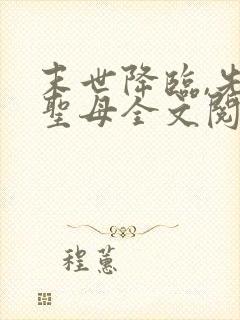 末世降臨,先
聖母全文閱
程蕙